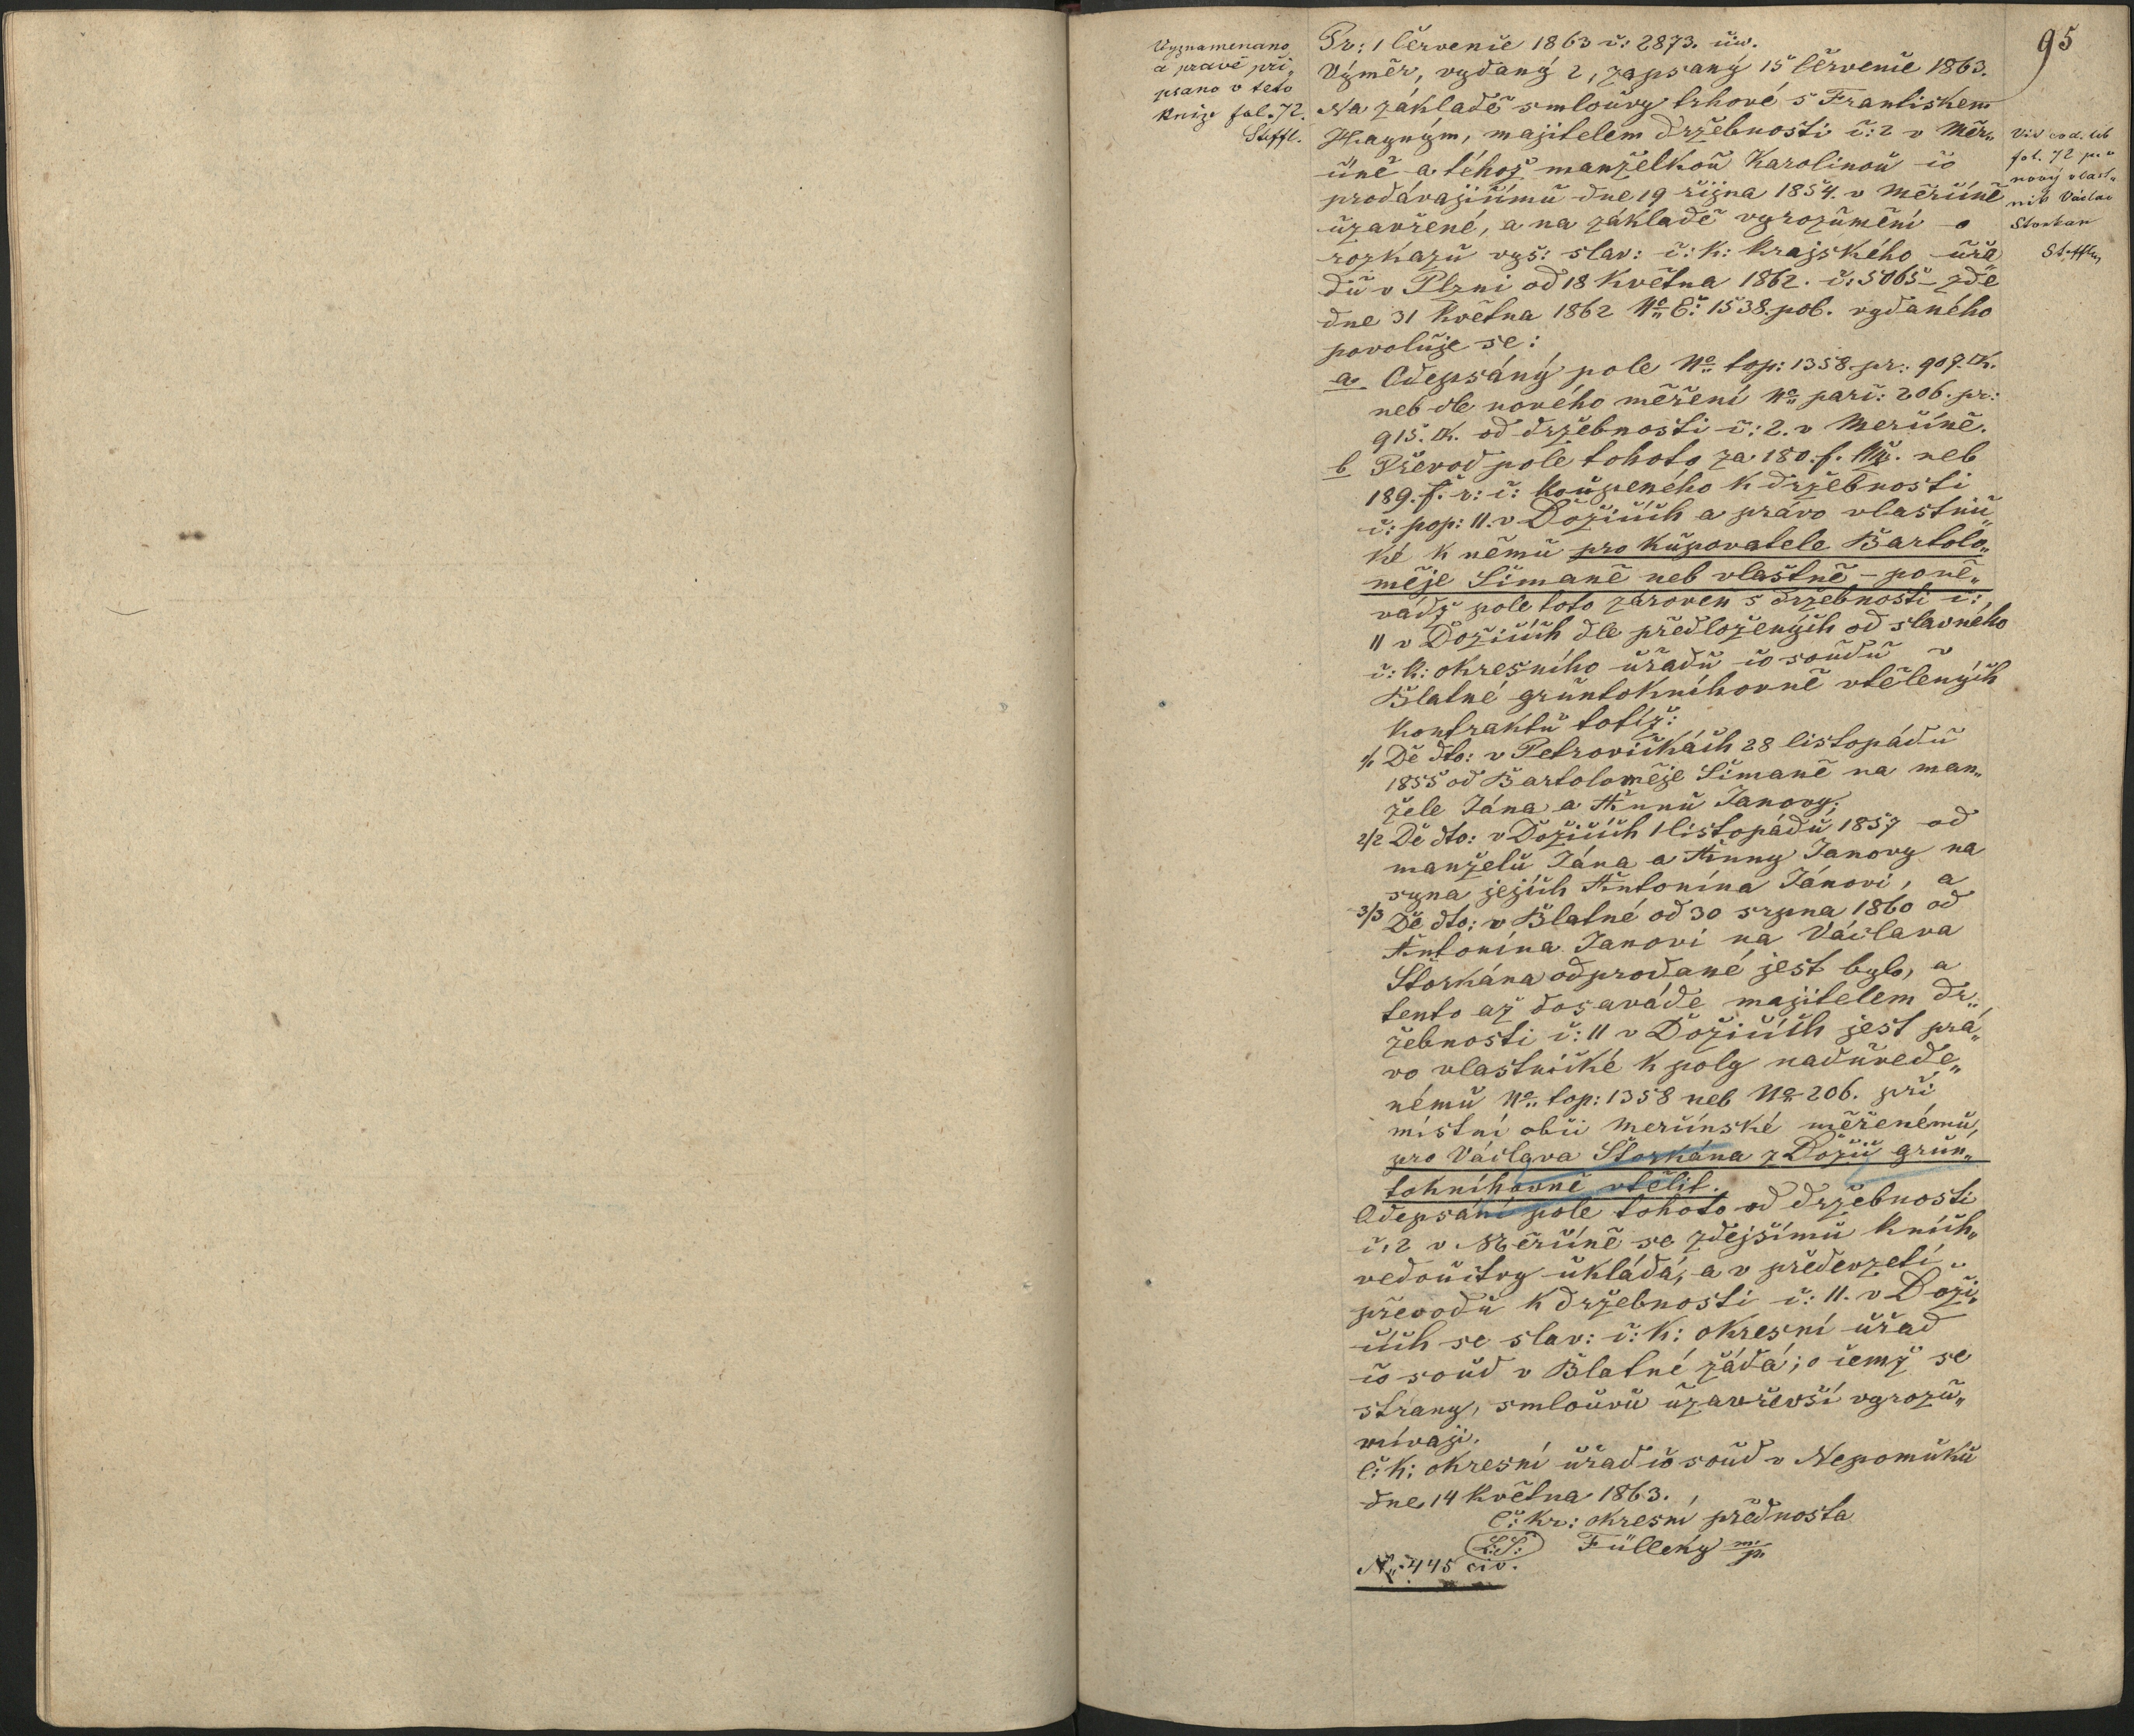 Vyznamenano
a pravě při„
psano v teto
knize fol. 72.
Steffl.
95
Pr: 1 Červenče 1863 č: 2873. civ.
Výměr, vydaný 2, zapsaný 15 Červenče 1863.
Na základě smloůvy trhové s Frantiskem
Hayným, majitelem držebnosti č: 2 v Měr„
číně a téhož manželkoů Karolinoů čo
prodávajičímů dne 19 října 1854. v Měrčíně
ůzavřené, a na základě vyrozůmění o
rozkazů vys: slav: c: k: krajského ůřa
dů v Plzni od 18 Května 1862. č: 5065 zde
dne 31 Května 1862 No E: 1538. pob. vydaného
povolůje se:
a Odepsáný pole No top: 1358. pr: 909. □K.
neb dle nového měření No parc: 206. pr:
915. □K. od držebnosti č: 2. v Merčíně.
b Převod pole tohoto za 180. f. Mz. neb
189. f. r: č: koůpeného k držebnosti
č: pop: 11. v Dožičích a právo vlastnič„
ké k němů pro kůpovatele Bartolo„
měje Šimaně neb vlastně – poně„
vádž pole toto zároveň s držebnosti č:
11 v Dožičích dle předložených od slavného
c: k: okresního ůřadů čo soůdů v
Blatné grůntoknihovně vtělených
Kontraktů totíž:
1/1 De dto: v Petrovičkách 28 listopádů
1855 od Bartoloměje Šimaně na man„
žele Jána a Annů Janovy;
2/2 De dto: v Dožičích 1 listopádů 1857 od
manželů Jána a Anny Janovy na
syna jejich Antonína Jánovi, a
3/3 De dto: v Blatné od 30 srpna 1860 od
Antonína Janovi na Václava
Štorkána odprodané jest bylo, a
tento až dosaváde majitelem dr„
žebnosti č: 11 v Dožičích jest prá„
vo vlastničké k poly nadůvede„
némů No top: 1358 neb No 206. při
místní obci Merčínské měřenémů,
pro Václava Štorkána z Dožic grůn„
toknihovně vtělit.
Odepsání pole tohoto od držebnosti
č: 2 v Měrčíně se zdejšímů knih„
vedoůctvy ůkládá, a v předevzetí
převodů k držebnosti č: 11. v Doži„
čích se slav: c: k: okresní ůřad
čo soůd v Blatné žádá; o čemž se
strany, smloůvů ůzavřevší vyrozů„
mívaji.
C: k: okresní ůřad čo soůd v Nepomůků
dne 14 Května 1863.
C: kr: okresní přednosta
L.S. Fülleky m/p
No 445 civ.
Viz cod. lib
fol. 72 pro
nový vlast„
nik Václav
Storkan
Steffl